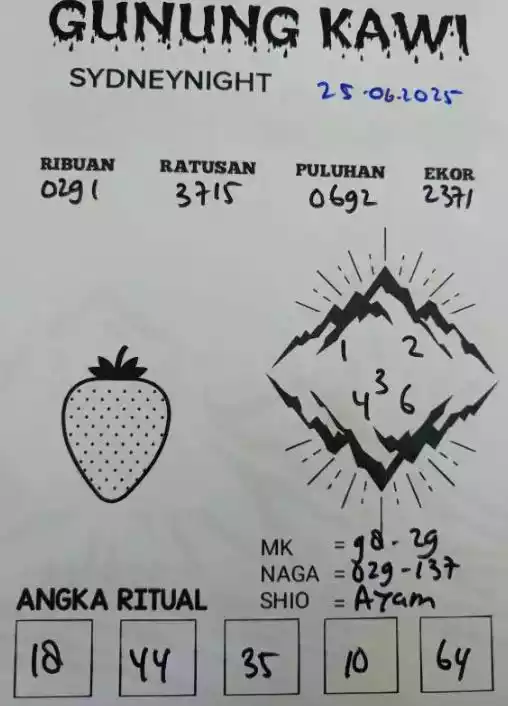 GUNUNG KAWI
SYDNEYNIGHT 25.06.2025
RIBUAN RATUSAN PULUHAN EKOR
0291 3715 0692 2371
1 2
3
4 6
MK = 98 - 29
NAGA = 029-137
SHIO = Ayam
ANGKA RITUAL
18 44 35 10 64